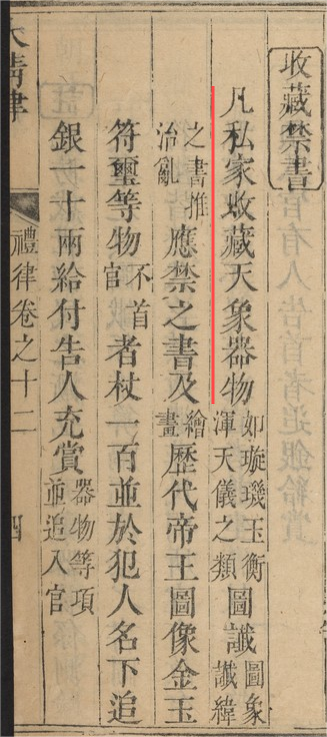 收藏禁書
凡私家收藏天象器物如璇璣玉衡渾天儀之類圖讖圖象讖緯
之書推治亂應禁之書及繪畫歷代帝王圖像金玉
符璽等物不首官者杖一百並於犯人名下追
銀一十兩給付告人充賞器物等項並追入官
大清律
禮律卷之十二
四